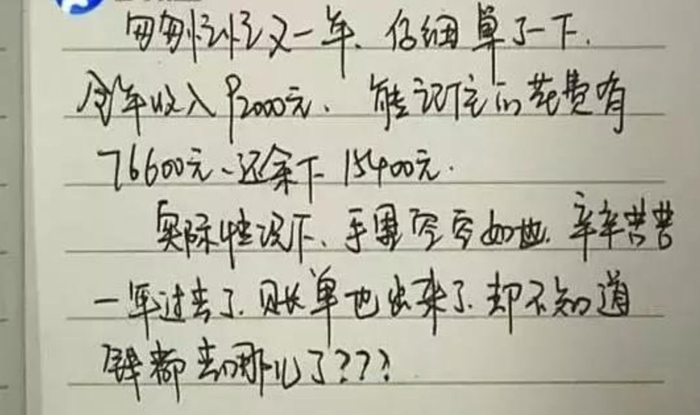 匆匆忙忙又一年、仔细算了一下、
今年收入92000元、能记住的花费有
76600元、还余下15400元.
实际情况下、手里空空如也、辛辛苦苦
一年过去了、账单也出来了、却不知道
钱都去哪儿了???